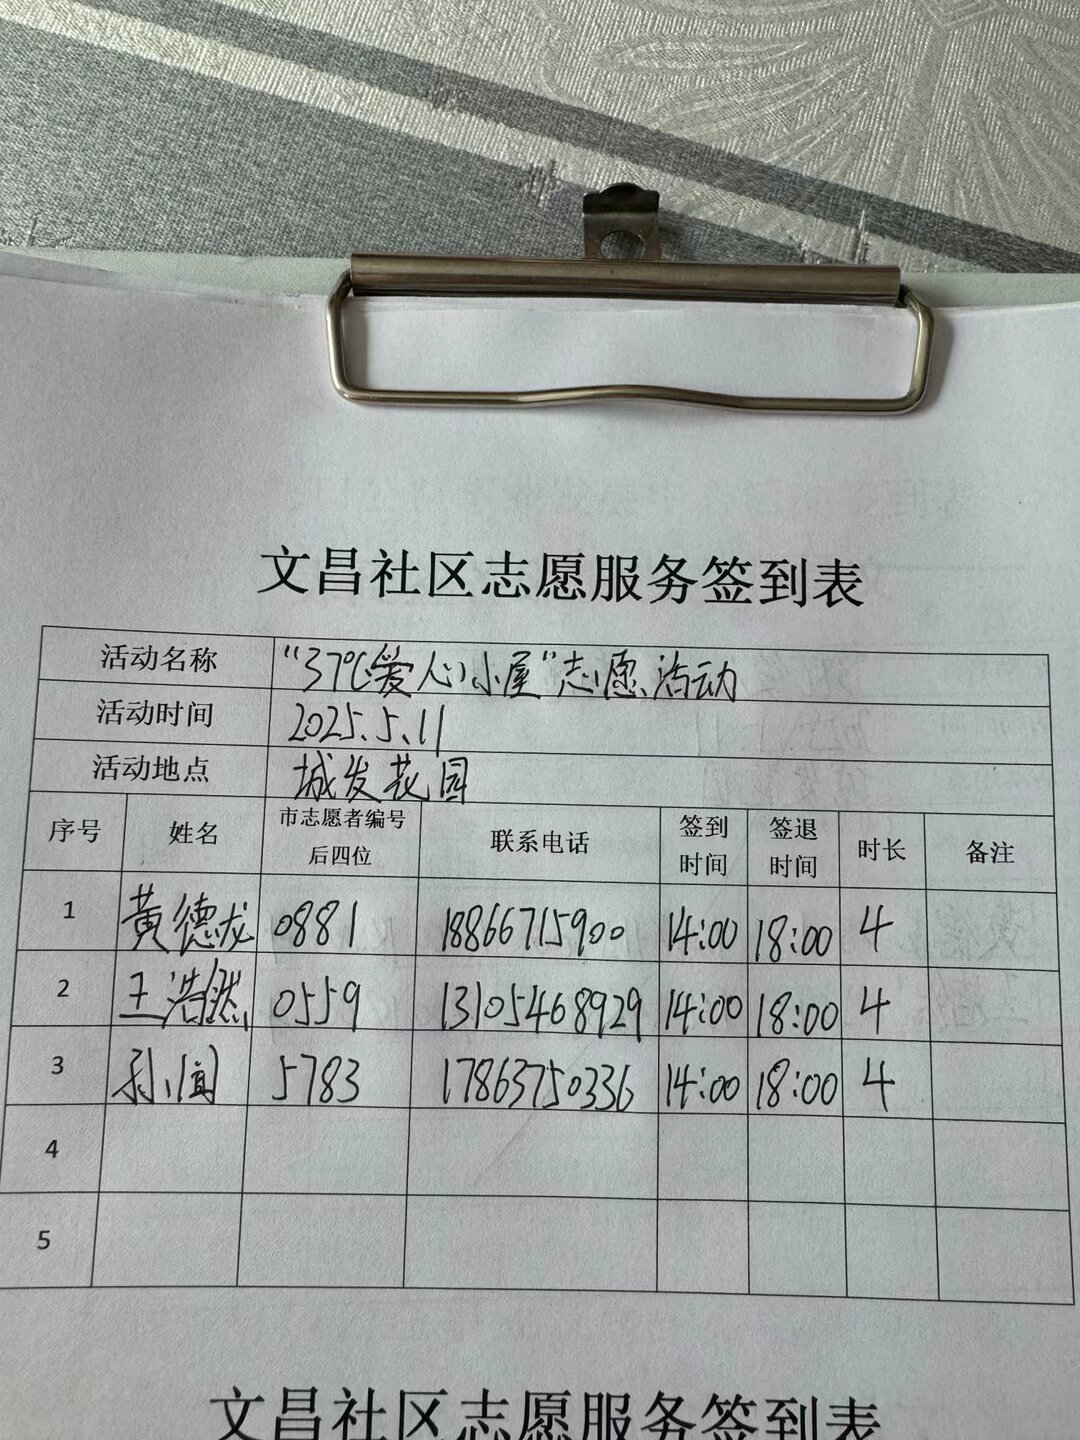 文昌社区志愿服务签到表
活动名称 “37℃爱心小屋”志愿活动
活动时间 2025.5.11
活动地点 城发花园
序号 姓名 市志愿者编号后四位 联系电话 签到时间 签退时间 时长 备注
1 黄德龙 0881 18866715900 14:00 18:00 4
2 王浩然 0559 13105468929 14:00 18:00 4
3 孙 5783 17863750336 14:00 18:00 4
4
5
文昌社区志愿服务签到表